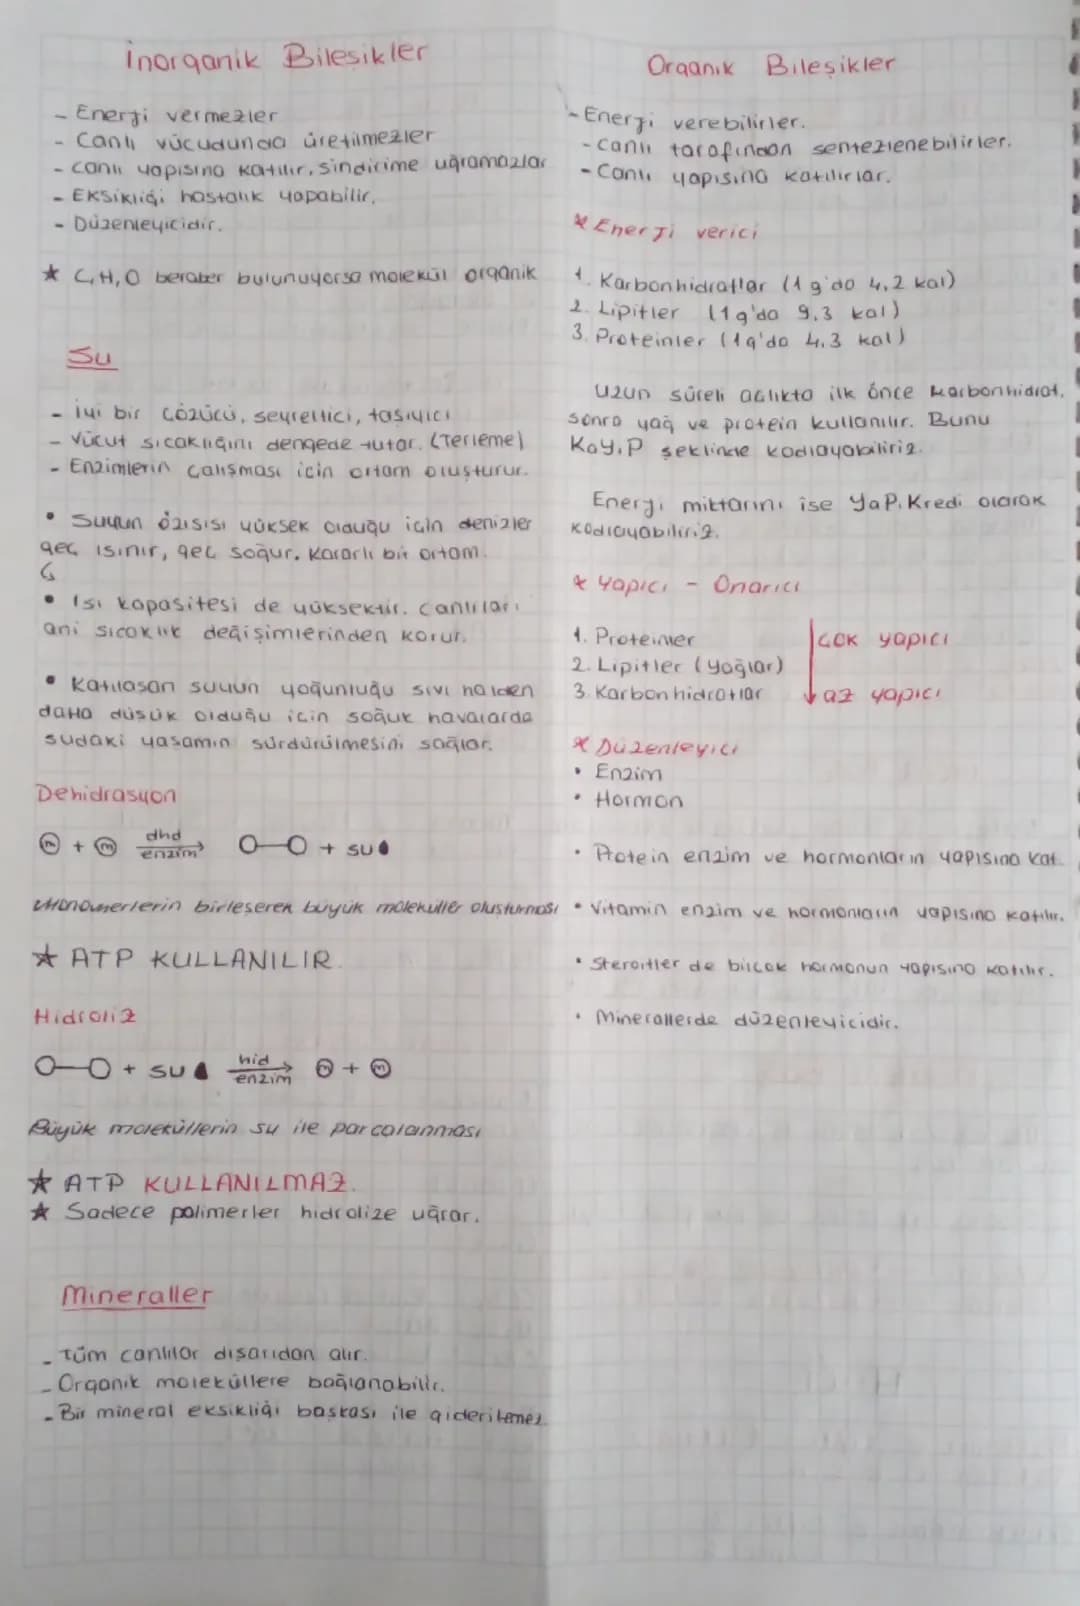 İnorganik Bileşikler
- Enerji vermezler
- Canlı vücudunda üretilmezler
- Canlı yapısına katılır, sindirime uğramazlar
- Eksikliği hastalık yapabilir.
- Düzenleyicidir.
★ C, H, O beraber bulunuyorsa molekül organik
Su
- İyi bir çözücü, seyreltici, taşıyıcı
- Vücut sıcaklığını dengede tutar. (Terleme)
- Enzimlerin çalışması için ortam oluşturur.
• Suyun özısısı yüksek olduğu için denizler
geç ısınır, geç soğur. Kararlı bir ortam.
• Isı kapasitesi de yüksektir. Canlıları
ani sıcaklık değişimlerinden korur.
• Katılaşan suyun yoğunluğu sıvı halden
daha düşük olduğu için soğuk havalarda
sudaki yaşamın sürdürülmesini sağlar.
Dehidrasyon
m + m dhd enzim → O-O + su
Monomerlerin birleşerek büyük moleküller oluşturması
★ ATP KULLANILIR.
Hidroliz
O-O + su hid enzim → m + m
Büyük moleküllerin su ile parçalanması
★ ATP KULLANILMAZ.
★ Sadece polimerler hidrolize uğrar.
Mineraller
- Tüm canlılar dışarıdan alır.
- Organik moleküllere bağlanabilir.
- Bir mineral eksikliği başkası ile giderilemez.
Organik Bileşikler
- Enerji verebilirler.
- Canlı tarafından sentezlenebilirler.
- Canlı yapısına katılırlar.
* Enerji verici
1. Karbonhidratlar (1 g'da 4,2 kal)
2. Lipitler (1g'da 9,3 kal)
3. Proteinler (1g'da 4,3 kal)
Uzun süreli açlıkta ilk önce karbonhidrat,
sonra yağ ve protein kullanılır. Bunu
KaY.P şeklinde kodlayabiliriz.
Enerji miktarını ise YaP.Kredi olarak
kodlayabiliriz.
* Yapıcı - Onarıcı
1. Proteinler
2. Lipitler (yağlar)
3. Karbonhidratlar
çok yapıcı
az yapıcı
* Düzenleyici
• Enzim
• Hormon
• Protein enzim ve hormonların yapısına kat.
• Vitamin enzim ve hormonların yapısına katılır.
• Steroitler de birçok hormonun yapısına katılır.
• Minerallerde düzenleyicidir.